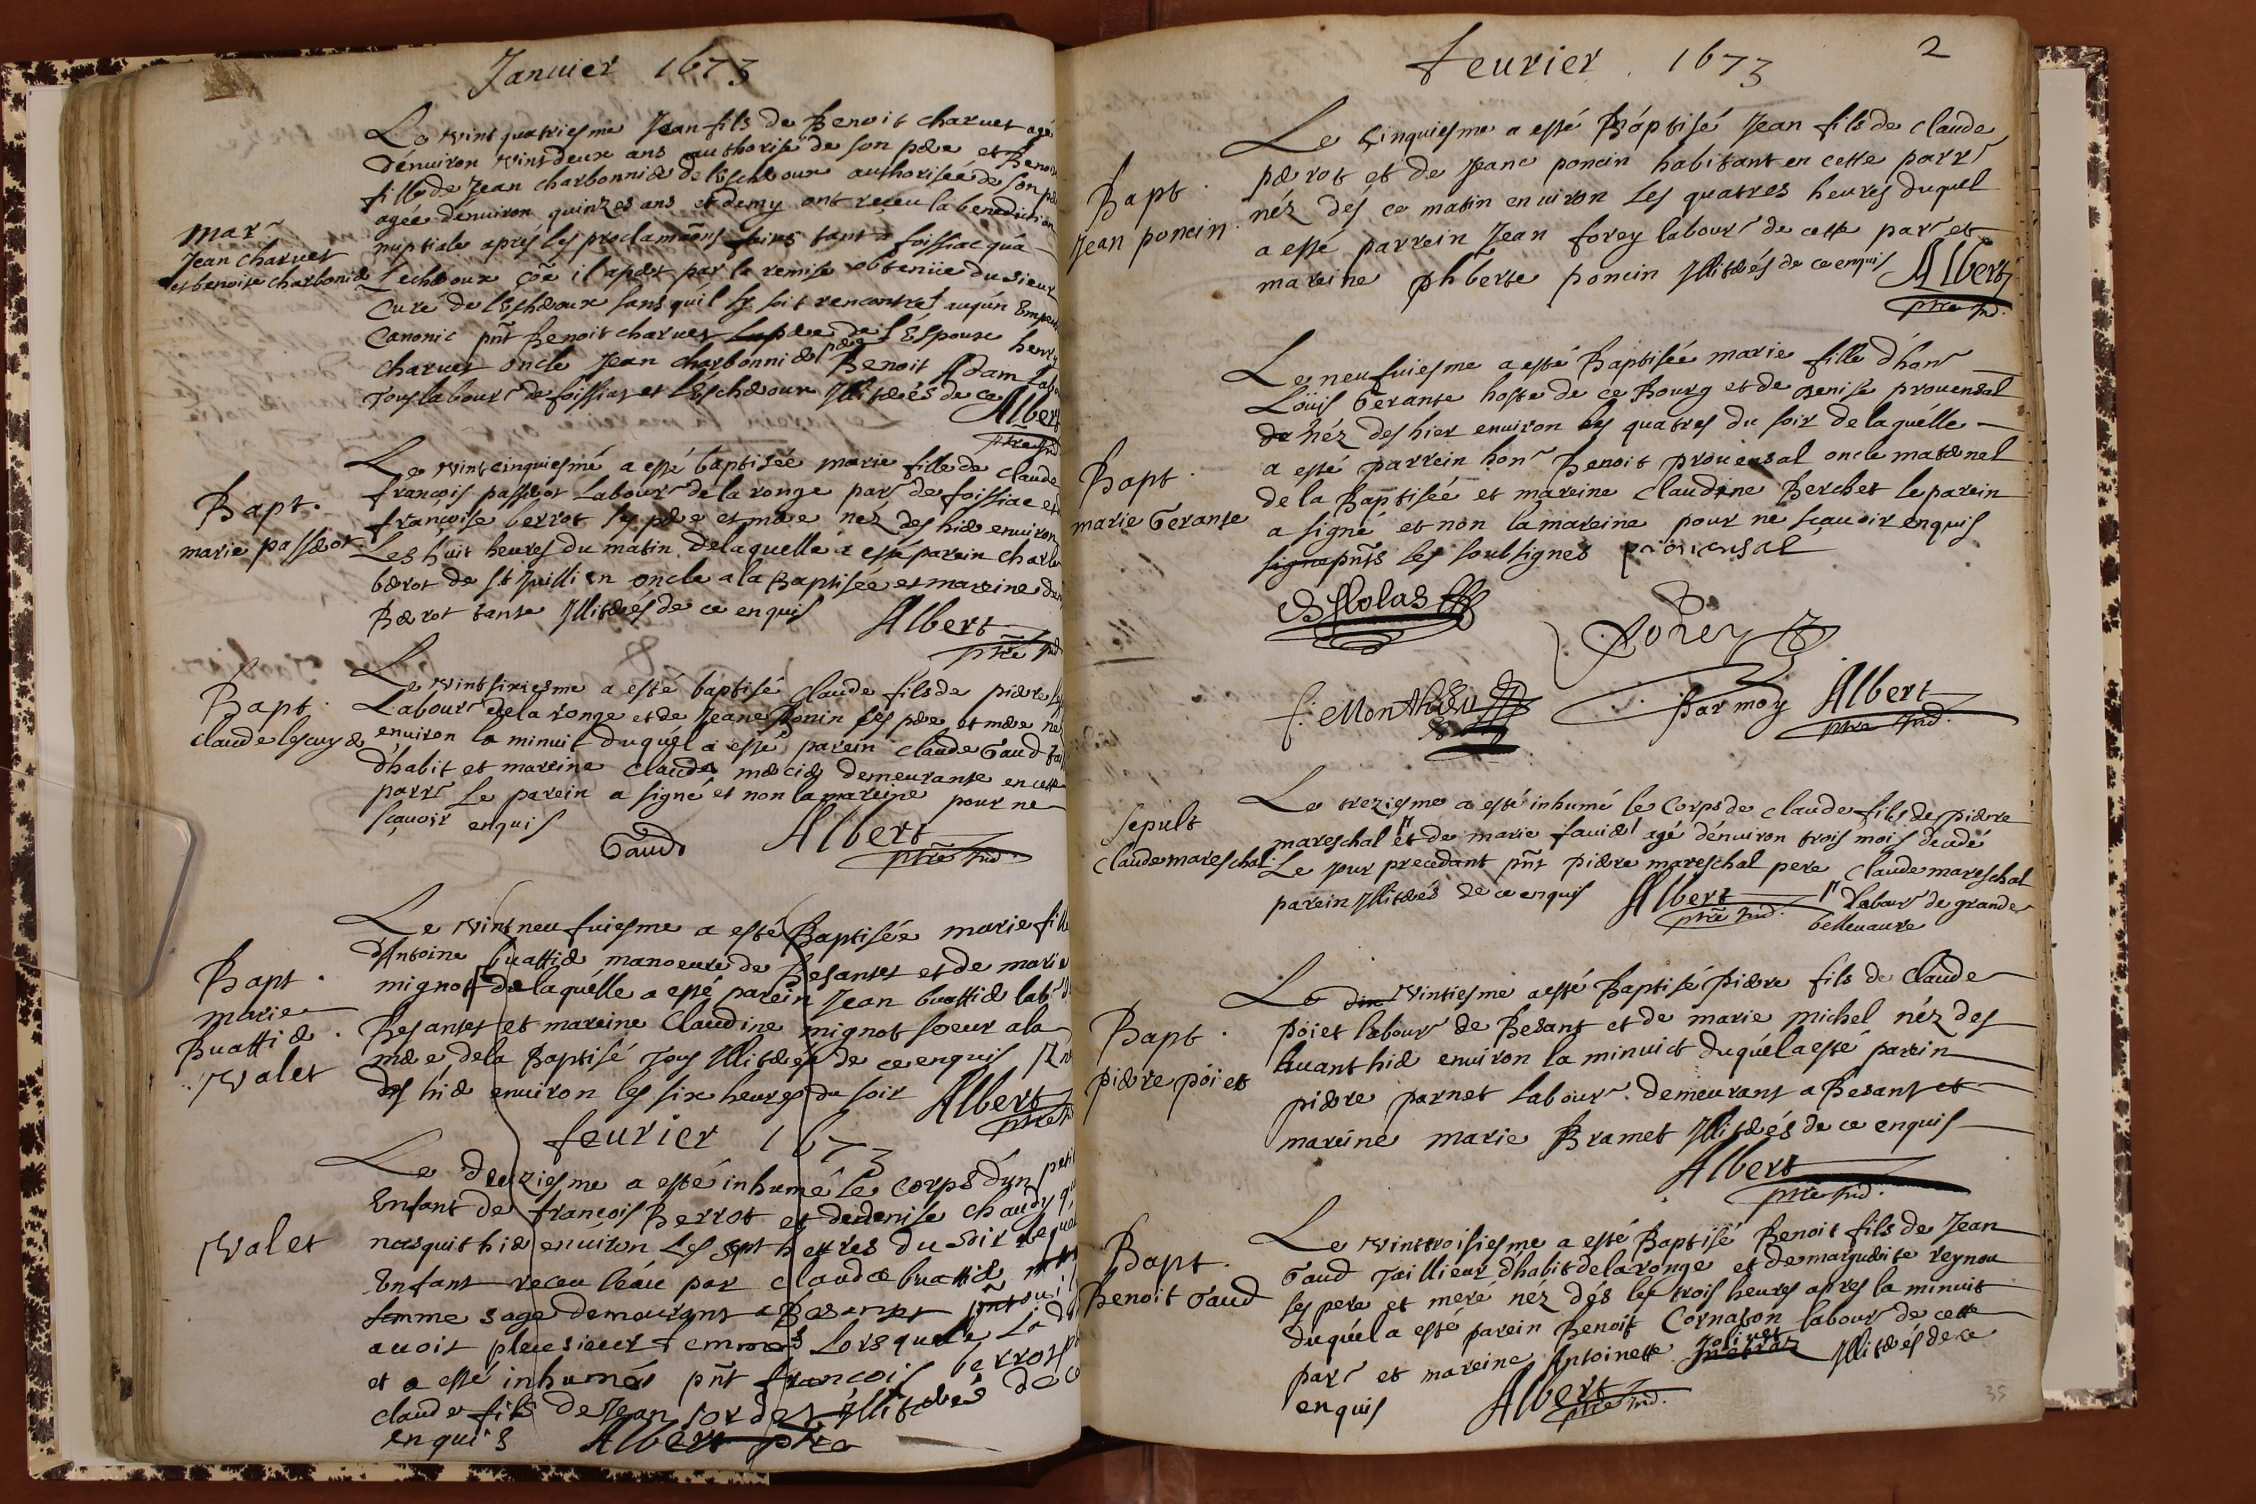 Januier 1673
Le vint quatriesme Jean fils de Benoit charuet agé
d'enuiron vint deux ans authorisé de son pere et Benoi
fille de Jean charbonnier de l'Escheroux authorisée de son pe
agee d'enuiron quinzes ans et demy ont receu la benediction
mar.
Jean charuet
et benoite charbonier
nuptiale aprés les proclamaõns faites tant a foissiac qu'a
Lecheroux cõe il apert par la remise obtenüe du sieur
Curé de l'Escheroux sans qu'il sy soit rencontré aucun Empech
Canonic pñt Benoit charuet pere de l'Espoux henry
charuet oncle Jean charbonnier pere Benoit Adam Lab
Tous labour. de foissiat et l'Escheroux Illiterés de ce
Albert
ptre Ind
Bapt.
marie passerot
Le vint cinquiesme a esté baptisée marie fille de claude
françois passerot Labour. de la ronge par. de foissiac et
françoise berrot ses pere et mere nez des hier enuiron
Les huit heures du matin de laquelle a esté parein charle
berot de st Juillien oncle a la Baptisee et mareine de
Berot tante Illiterés de ce enquis
Albert
ptre Ind
Bapt.
claude lescuyer
Le vint sixiesme a esté baptisé claude fils de piere les
Labour. de la ronge et de Jeane Bonin ses pere et mere ne
enuiron la minuit duquel a esté parein claude Gaud tail
d'habit et mareine claude mercier demeurante en cette
parr. Le parein a signé et non la mareine pour ne
sçauoir enquis
Gaud Albert
ptre Ind.
Bapt.
marie
Buattier.
Valet
Le vint neufuiesme a esté Baptisée marie fille
d'Antoine buattier manoeure de Besantet et de marie
mignot de laquelle a esté parein Jean buattier lab.
Besantet et mareine Claudine mignot soeur a la
mere de la Baptisé Tous Illiterés de ce enquis
des hier enuiron les six heures du soir
Albert
ptre
feurier 1673
Valet
Le deuziesme a esté inhumé le corps d'un petit
Enfant de françois Berrot et de denise chaudy qu
nasquit hier enuiron Les sept heures du soir leque
Enfant receu l'eau par claudæ buattier
femme sage demeurant a Besantet pñt ou il
auoit pleusieur femmes Lorsquele La
et a esté inhumés pñt françois berrot
claude fils de Jean sordet illiterés de ce
enquis Albert ptre
Feurier 1673 2
Bapt.
Jean poncin.
Le Cinquiesme a esté Baptisé Jean fils de claude
perrot et de Jeane poncin habitant en cette parr.
néz dés ce matin enuiron Les quatres heures duquel
a esté parrein Jean forey labour. de cette par. et
mareine phberte poncin Illiterés de ce enquis Albert
ptre Ind.
Bapt.
marie Gerante
Le neufuiesme a esté Baptisée marie fille d'hon.
Loüis Gerante hoste de ce Bourg et de Denise prouensal
de néz des hier enuiron les quatres du soir de laquelle
a esté parrein hon. Benoit prouensal oncle maternel
de la Baptisée et mareine Claudine Berchet le parein
a signé et non la mareine pour ne sçauoir enquis
signe pñts les soubsignes prouensal
Forey
Parmoy Albert
ptre Ind.
Sepult
Claude mareschal.
Le treziesme a esté inhumé le Corps de claude fils de piere
mareschal et de marie fauier agé d'enuiron trois mois decedé
Le jour precedant pñt piere mareschal pere claude mareschal
parein Illiterés de ce enquis Albert
ptre Ind.
labour de grande
belleuaure
Bapt.
piere pöiet
Le dix Vintiesme a esté Baptisé piere fils de Claude
pöiet labour. de Besant et de marie michel néz des
Auant hier enuiron la minuict duquél a esté parein
piere parnet Labour. demeurant a Besant et
mareine marie Bramet Illiterés de ce enquis
Albert
ptre Ind.
Bapt.
Benoit Gaud
Le vint troisiesme a esté Baptisé Benoit fils de Jean
Gaud Taillieur d'habit de la ronge et de marguerite reynou
ses pere et meré néz dés les trois heures apres la minuit
duquél a esté parein Benoit Cornaton labour. de cette
par. et mareine Antoinette Joliuet Illiterés de ce
enquis
Albert
ptre Ind.
35